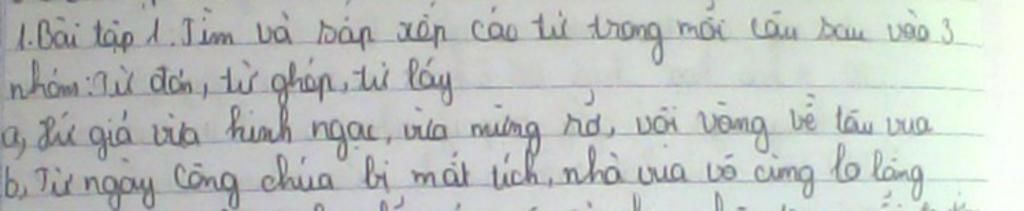 1. Bài tập 1. Tìm và sắp xếp các từ trong mỗi câu sau vào 3
nhóm: Từ đơn, từ ghép, từ láy
a, Sứ giả vừa kinh ngạc, vừa mừng rỡ, vội vàng về tâu vua
b, Từ ngày công chúa bị mất tích, nhà vua vô cùng lo lắng